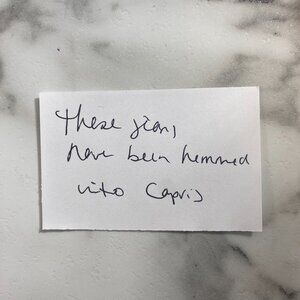 These jeans
have been hemmed
into Capris